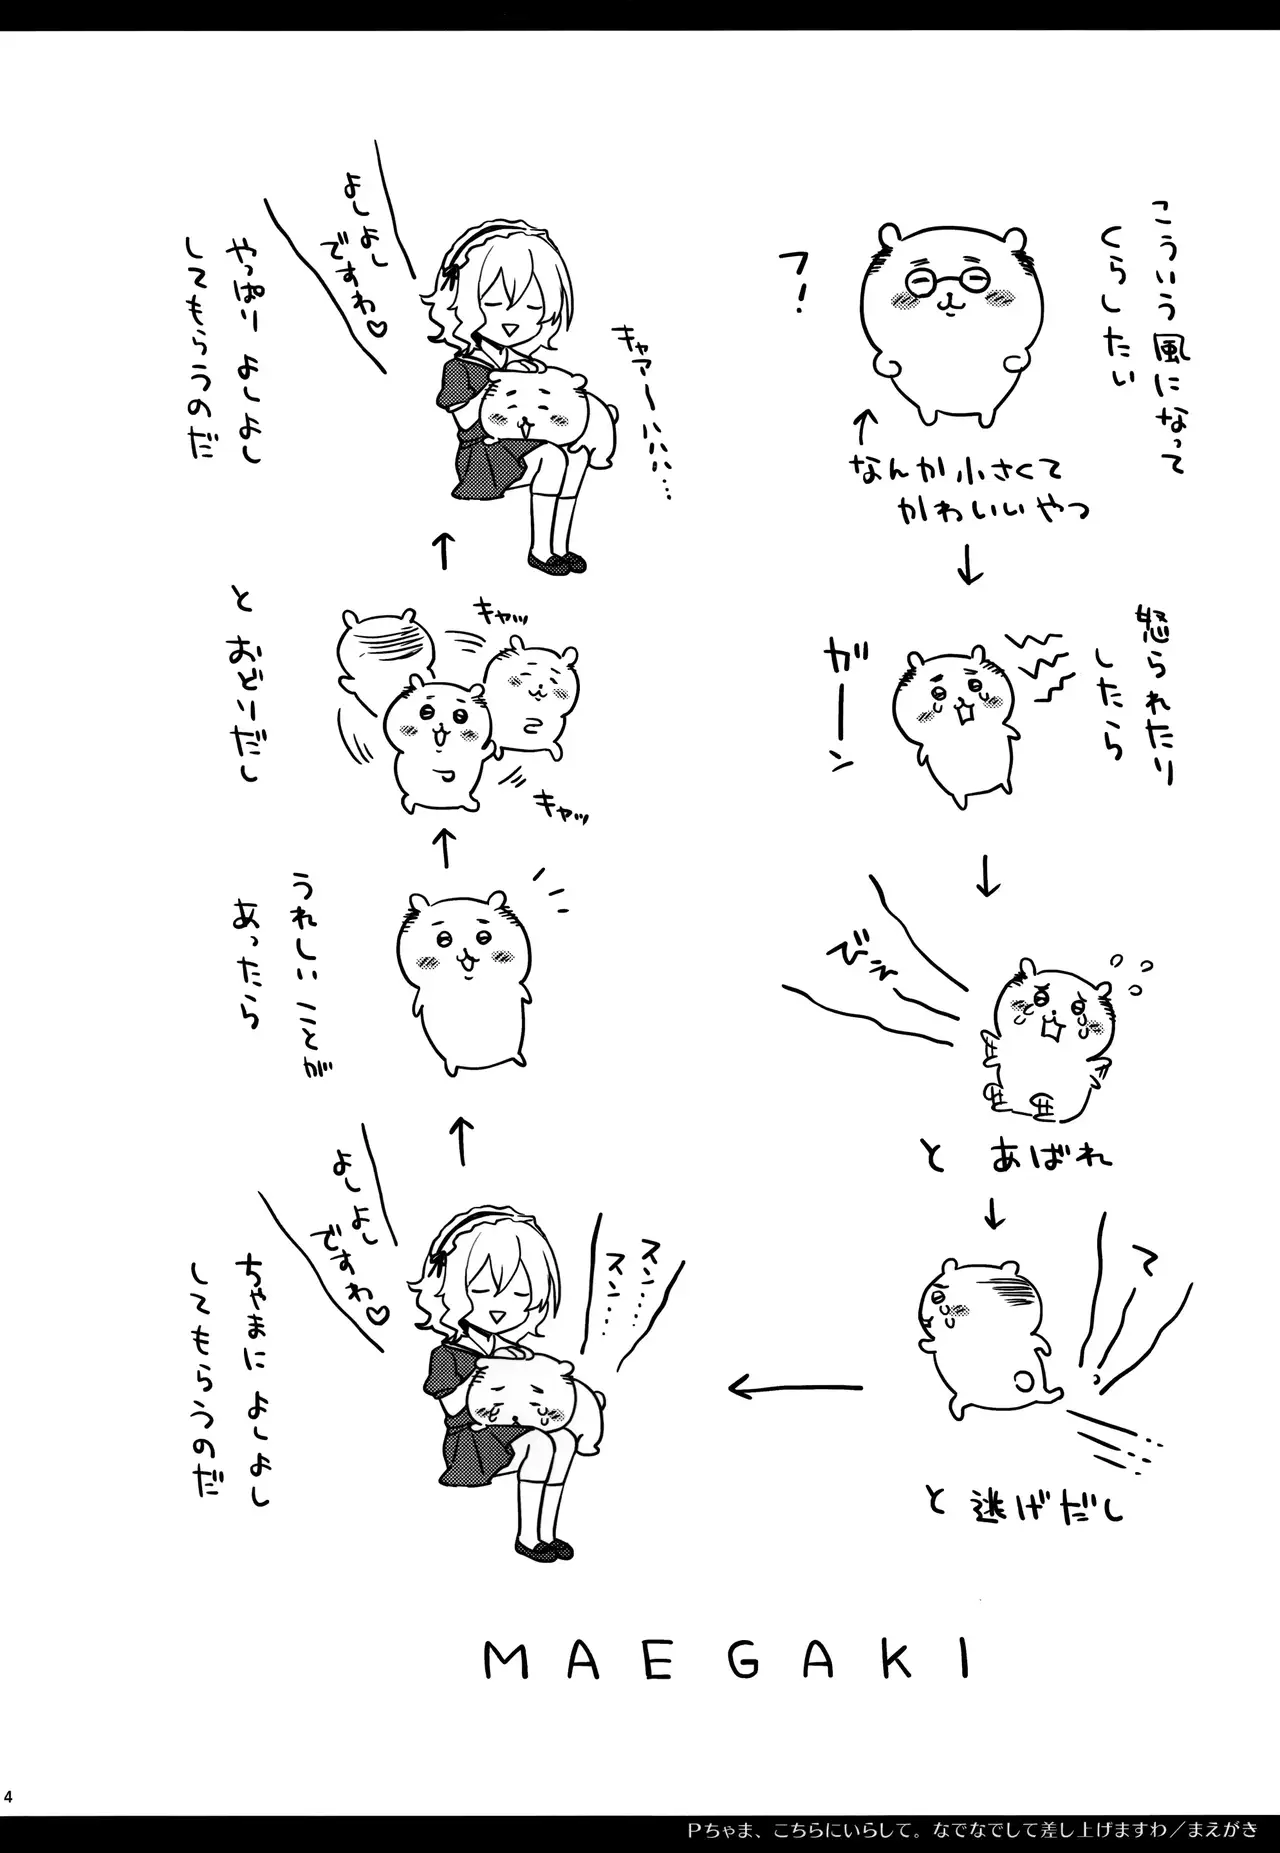 こういう風になって
くらしたい
フ!
↑
なんか小さくて
かわいいやつ
↓
怒られたり
したら
ガーーン
↓
びえ
と あばれ
↓
て
と 逃げだし
←
スン……
スン……
よしよし
ですわ♡
ちゃまに よしよし
してもらうのだ
↑
うれしいことが
あったら
↑
キャッ
キャッ
と おどりだし
↑
キャアーハハハ……
よしよし
ですわ♡
やっぱり よしよし
してもらうのだ
MAEGAKI
4
Pちゃま、こちらにいらして。なでなでして差し上げますわ／まえがき